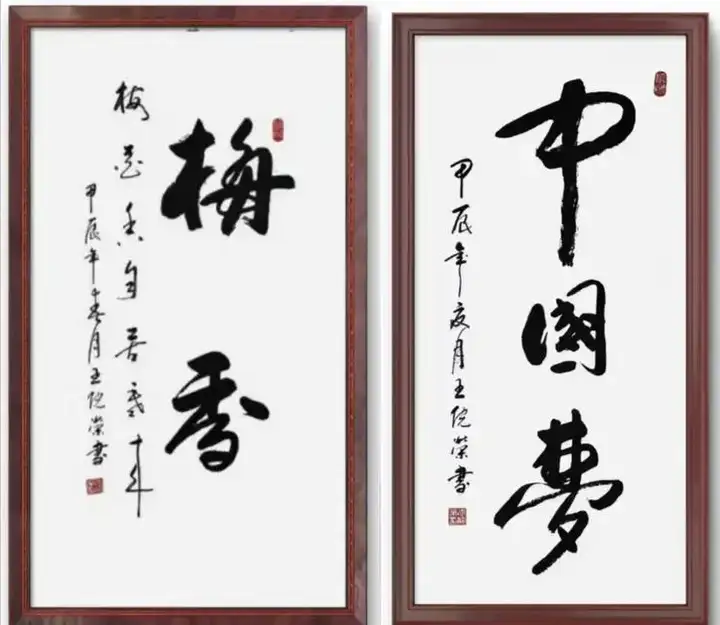 梅香
梅花香自苦寒来
甲辰年春月王榮書
中國夢
甲辰年夏月王榮書